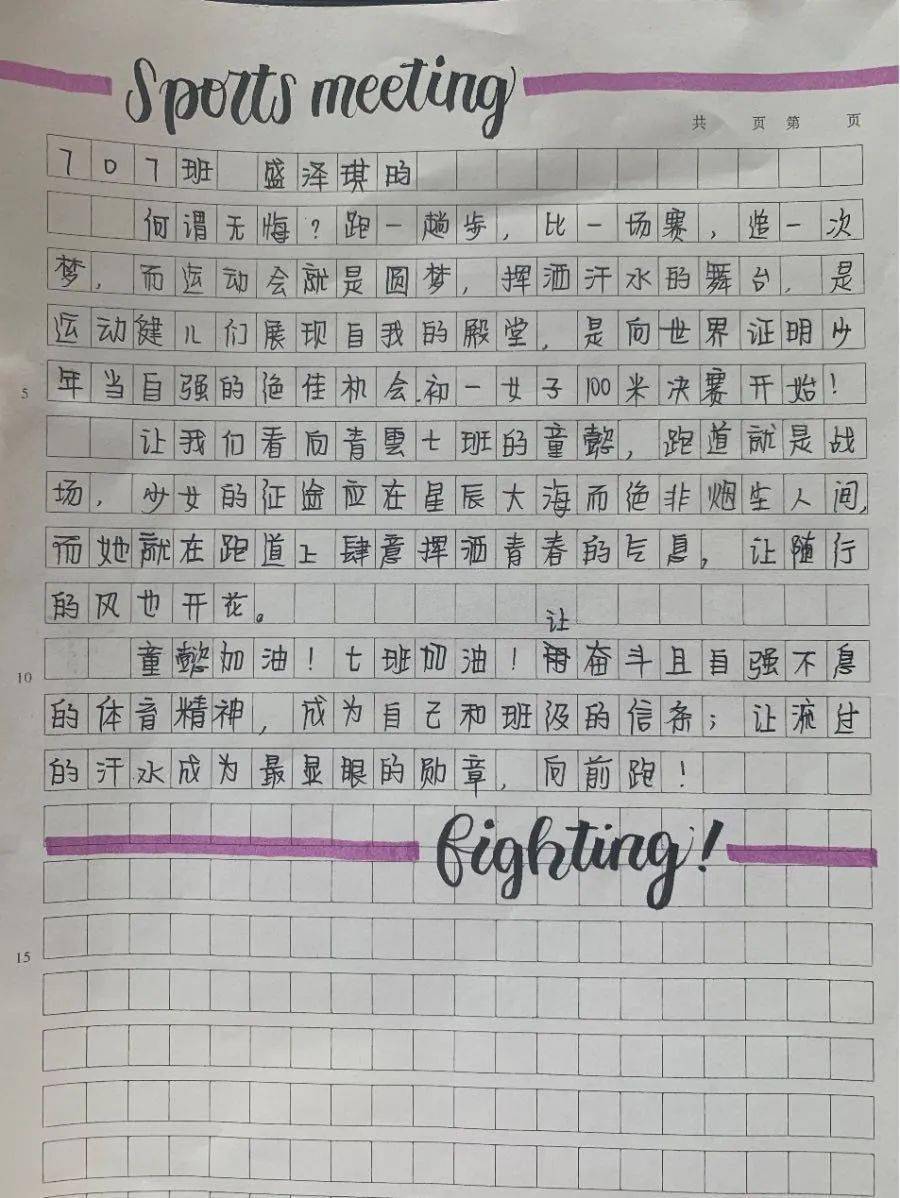 Sports meeting
共 页 第 页
707班 盛泽琪昀
何谓无悔？跑一趟步，比一场赛，追一次
梦，而运动会就是圆梦，挥洒汗水的舞台，是
运动健儿们展现自我的殿堂，是向世界证明少
5
年当自强的绝佳机会.初一女子100米决赛开始！
让我们看向青雲七班的童懿，跑道就是战
场，少女的征途应在星辰大海而绝非烟尘人间，
而她就在跑道上肆意挥洒青春的气息，让随行
的风也开花。
让
10
童懿加油！七班加油！奋斗且自强不息
的体育精神，成为自己和班级的信条；让流过
的汗水成为最显眼的勋章，向前跑！
fighting!
15